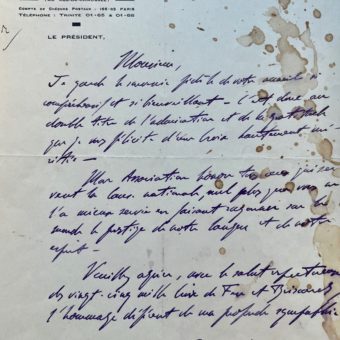 COMPTE DE CHÈQUES POSTAUX : PARIS
TÉLÉPHONE : TRINITÉ 01-65 À 01-68
LE PRÉSIDENT,
Monsieur,
Je garde le souvenir de votre accueil si
compréhensif et si bienveillant – C'est donc au
double titre de l'admiration et de la gratitude
que je vous félicite d'une Croix hautement mé-
ritée –
Mon Association honore tous ceux qui ser-
vent la cause nationale, nul plus que vous ne
l'a mieux servie en faisant rayonner sur le
monde le prestige de notre langue et de notre
esprit.
Veuillez agréer, avec le salut
des vingt-cinq mille
l'hommage déférent de ma profonde sympathie